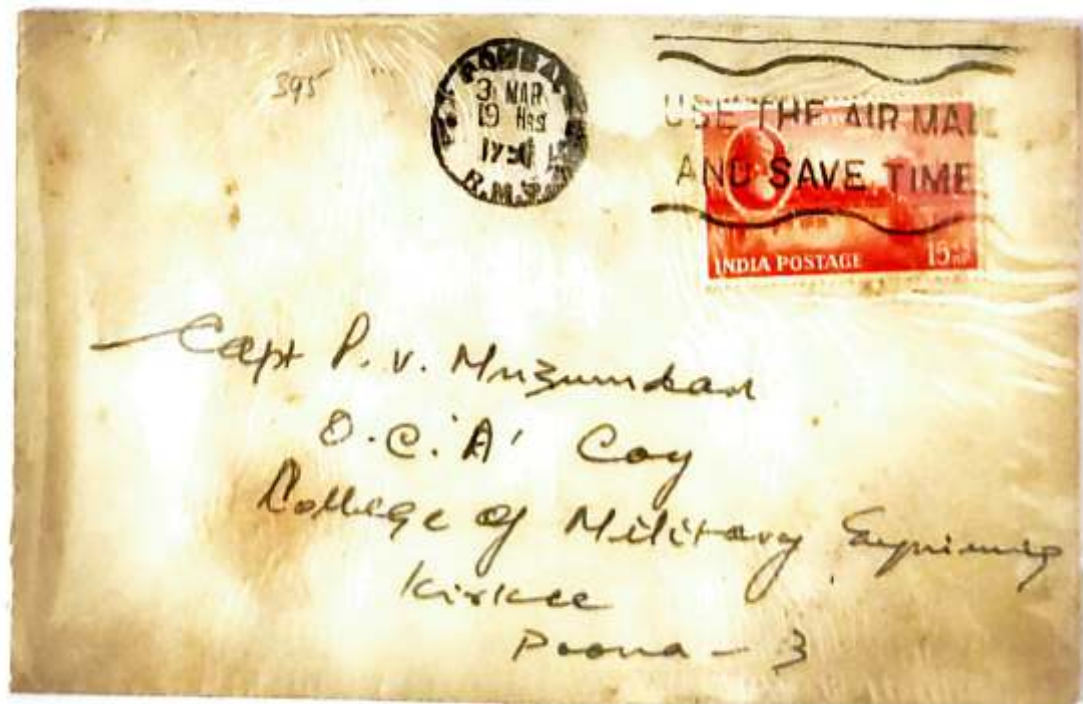 395
BOMBAY
3 MAR
19 HRS
R.M.S.
USE THE AIR MAIL
AND SAVE TIME
INDIA POSTAGE 15 nP
Capt P. V. Muzumdar
O.C. 'A' Coy
College of Military
Kirkee
Poona - 3